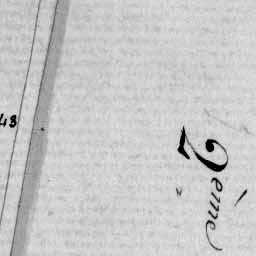 43
2ème